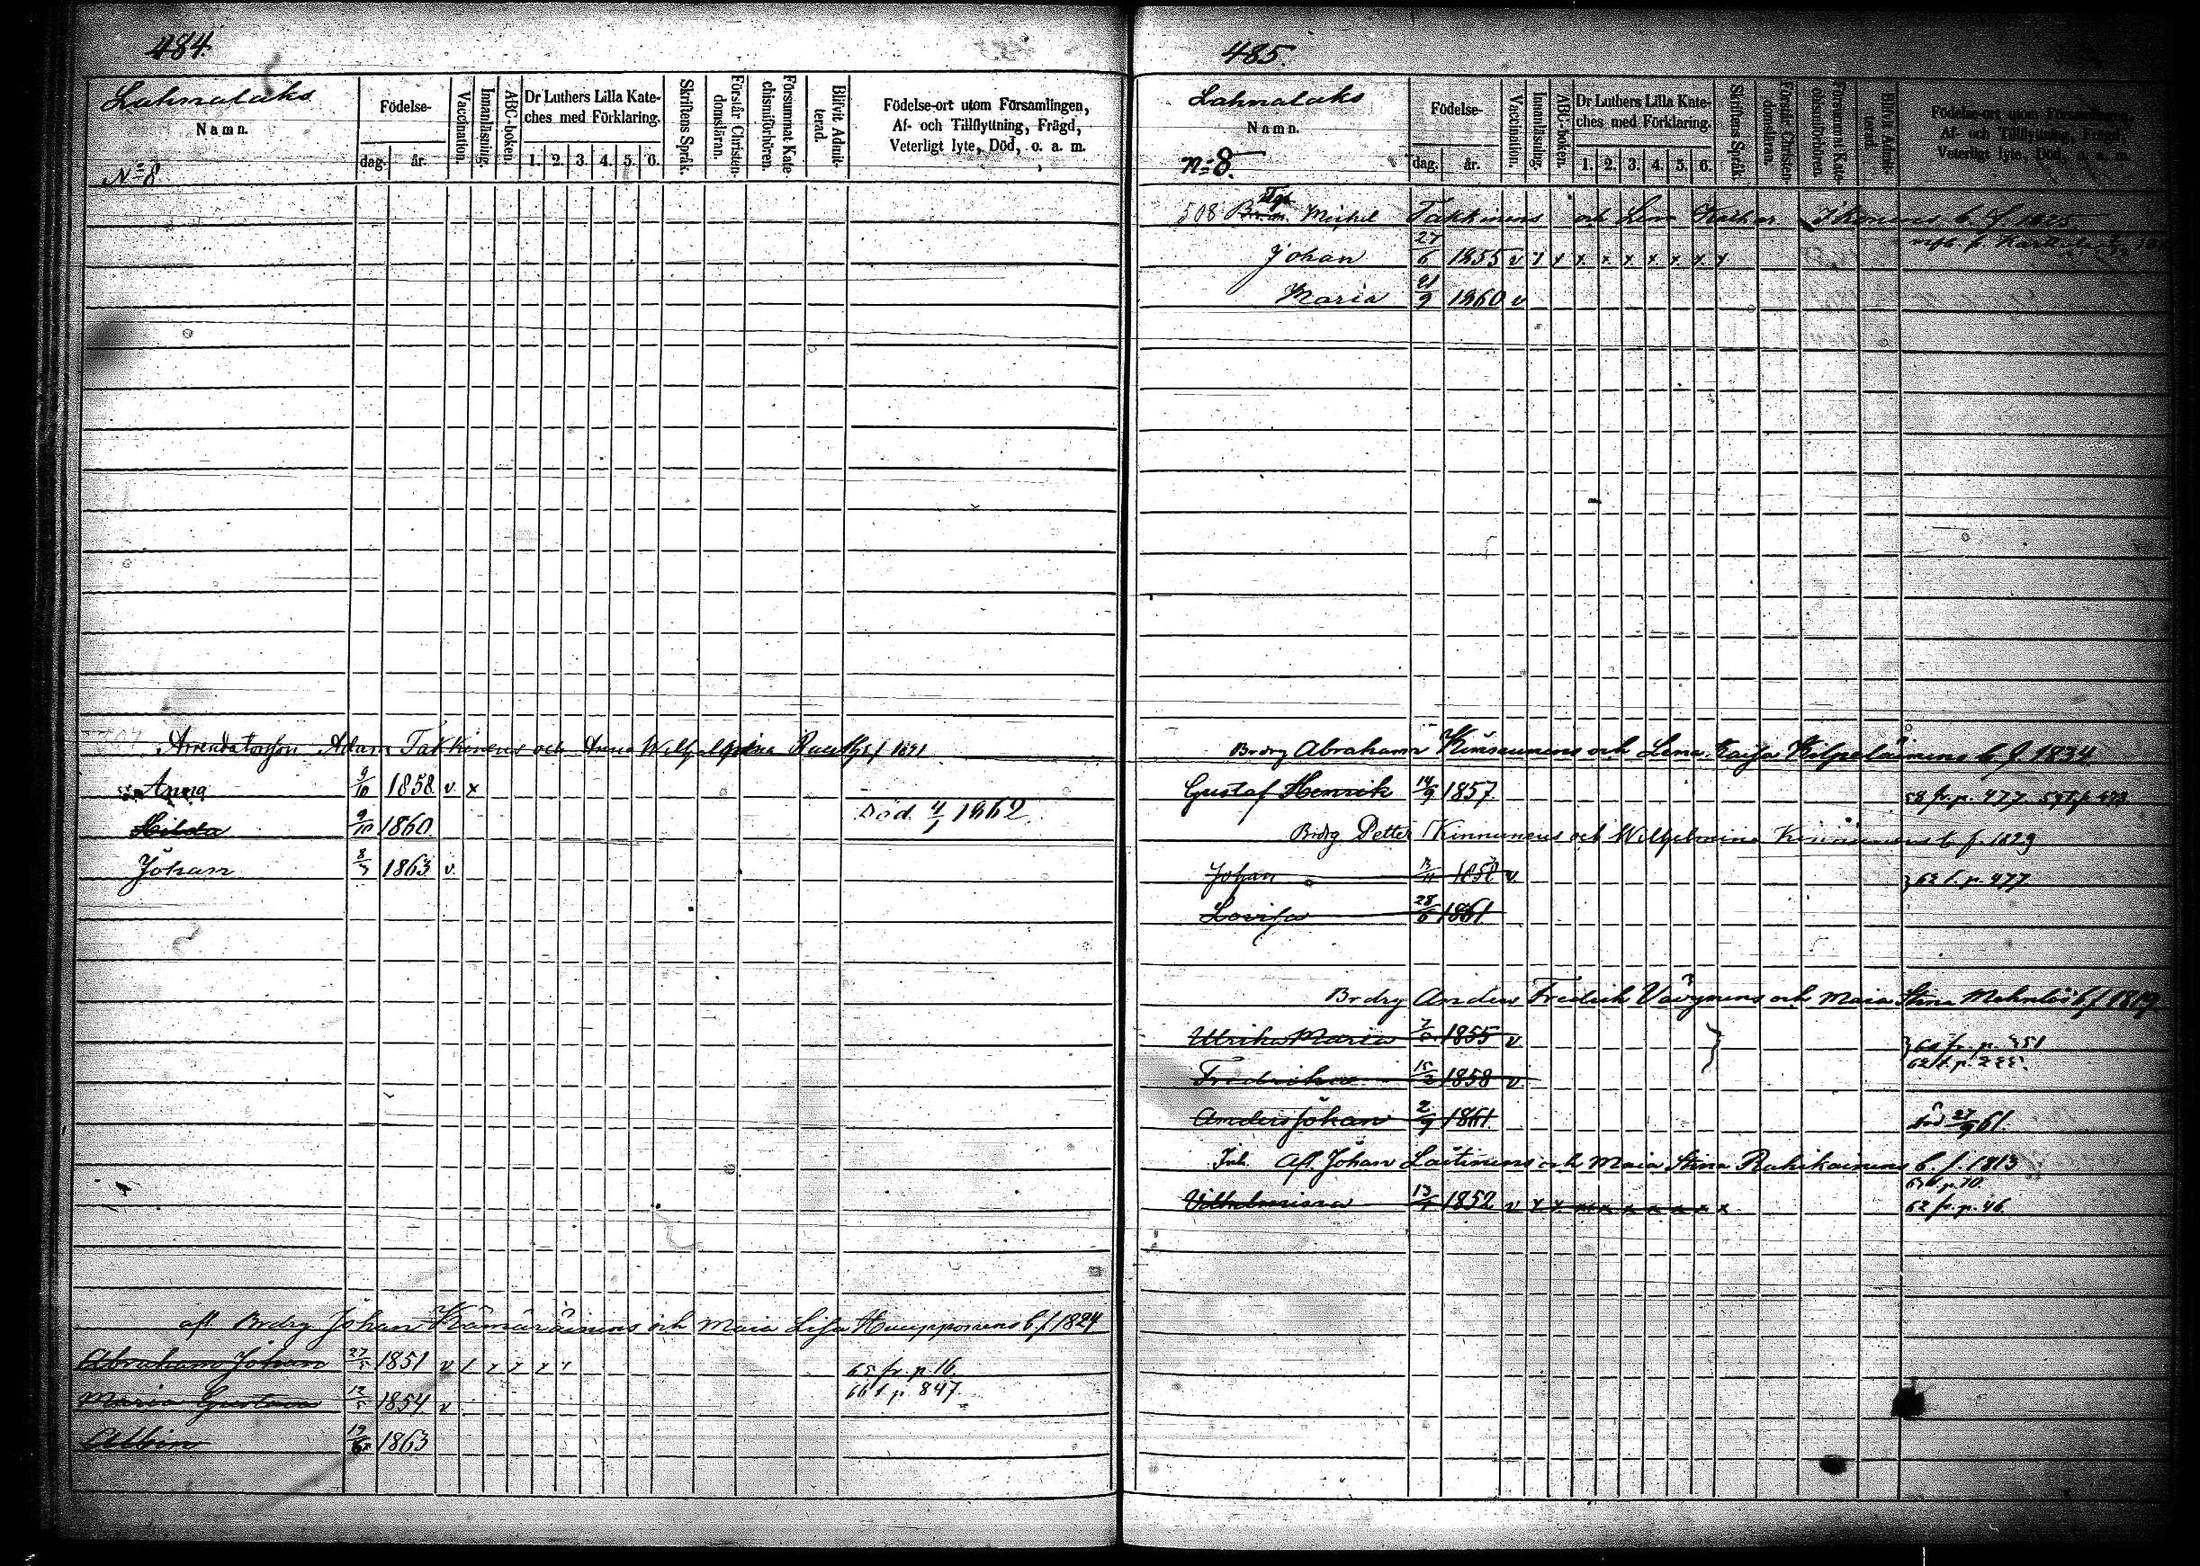 484.
Lahnalaks
Namn.
No 8
Födelse-
dag. år.
Vaccination.
Innanläsning.
ABC-boken.
Dr Luthers Lilla Kate-
ches med Förklaring.
1. 2. 3. 4. 5. 6.
Skriftens Språk.
Förstår Christen-
domsläran.
Försummat Kate-
chismiförhören.
Blifvit Admit-
terad.
Födelse-ort utom Församlingen,
Af- och Tillflyttning, Frägd,
Veterligt lyte, Död, o. a. m.
Adam Takkinens och Anna
Anna 9/10 1858 v x
Hilda 9/10 1860 Död 4/1 1862
Johan 8/3 1863 v.
afl. Brdrg Johan Kämäräinens och Maia Lisa b f 1824
Abraham Johan 27/5 1851 v
65 fr. p. 16
Maria Gustava 12/5 1854 v
66 t p 847
Albin 19/6 1863
485.
Lahnalaks
Namn.
No 8.
Födelse-
dag. år.
Vaccination.
Innanläsning.
ABC-boken.
Dr Luthers Lilla Kate-
ches med Förklaring.
1. 2. 3. 4. 5. 6.
Skriftens Språk.
Förstår Christen-
domsläran.
Försummat Kate-
chismiförhören.
Blifvit Admit-
terad.
Födelse-ort utom Församlingen,
Af- och Tillflyttning, Frägd,
Veterligt lyte, Död, o. a. m.
508 Michel Takkinens och Lena Kathar
Johan 27/6 1855 v x x x x x x x x x
Maria 21/9 1860 v
Brdrg Abraham Kinnunens och Lena Kaisa Kilpeläinens b f. 1834
Gustaf Henrik 14/9 1857
58 fr. p. 477
Brdrg Petter Kinnunens och Wilhelmina Kinnunens b f. 1829
Johan 1858 v
62 t. p. 477
Lovisa 28/6 1861
Brdrg Anders Fredrik Väyrynens och Maia Stina b f 1819
Ulrika Maria 1855 v
Fredrika 1858 v
Anders Johan 2/9 1861 död 27/9 61.
Inh. Afl. Johan Laitinens och Maia Stina b. f. 1813
Vilhelmina 1852 v x x x x x x x x x
62 fr. p. 46